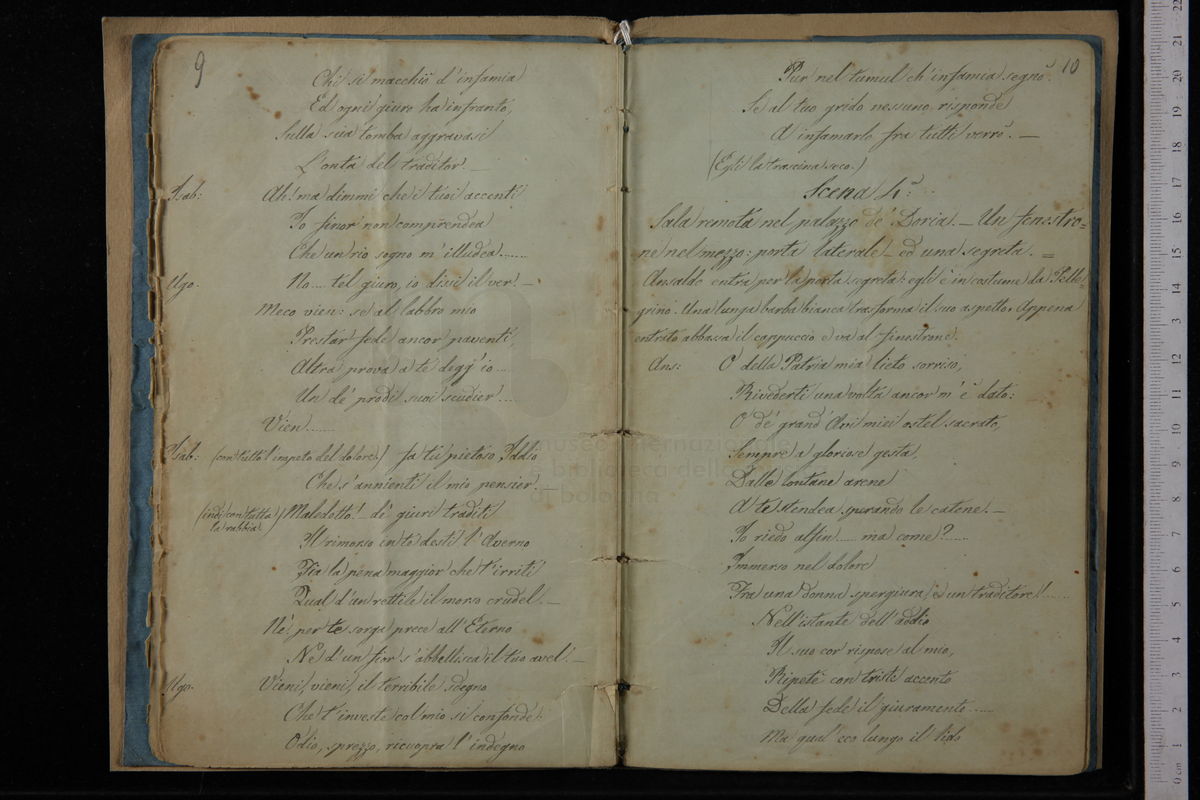 9
Chi si macchiò d'infamia
Ed ogni giuro ha infranto,
Sulla sua tomba aggravasi
L'onta del traditor. —
Isab: Ah! ma dimmi che i tuoi accenti
Io finor non comprendea
Che un rio sogno m'illudea......
Ugo. No.... tel giuro, io dissi il ver! —
Meco vien: se al labbro mio
Prestar fede ancor paventi,
Altra prova a te degg'io....
Un de' prodi suoi scudier....
Vien.......
Isab: (con tutto l'impeto del dolore) Fa tu pietoso Iddio
Che s'annienti il mio pensier. —
(indi con tutta la rabbia) Maledetto! — de' giuri traditi
Il rimorso in te desti l'Averno
Fia la pena maggior che t'irriti
Qual d'un rettile il morso crudel. —
Nè per te sorga prece all'Eterno
Nè d'un fior s'abbellisca il tuo avel! —
Ugo. Vieni, vieni, il terribile sdegno
Che t'investe col mio si confonde:
Odio, sprezzo, ricuopra l'indegno
10
Pur nel tumul ch'infamia segnò.
Se al tuo grido nessuno risponde
A infamarlo fra tutti verrò. —
(Egli la trascina seco.)
Scena 4.ª
Sala remota nel palazzo de' Doria. — Un fenestro=
ne nel mezzo: porta laterale — ed una segreta. =
Ansaldo entra per la porta segreta: egli è in costume da Pelle
grino. Una lunga barba bianca trasforma il suo aspetto. Appena
entrato abbassa il cappuccio e va al finestrone.
Ans: O della Patria mia lieto sorriso,
Rivederti una volta ancor m'è dato:
O de' grand'Avi miei ostel sacrato,
Sempre a gloriose gesta,
Dalle lontane arene
A te stendea sperando le catene. —
Io riedo alfin..... ma come?......
Immerso nel dolore
Fra una donna spergiura, e un traditore!......
Nell'istante dell'addio
Il suo cor rispose al mio,
Ripetè con triste accento
Della fede il giuramento.....
Ma qual'eco lungo il lido
museo internazionale
e biblioteca della musica
di bologna